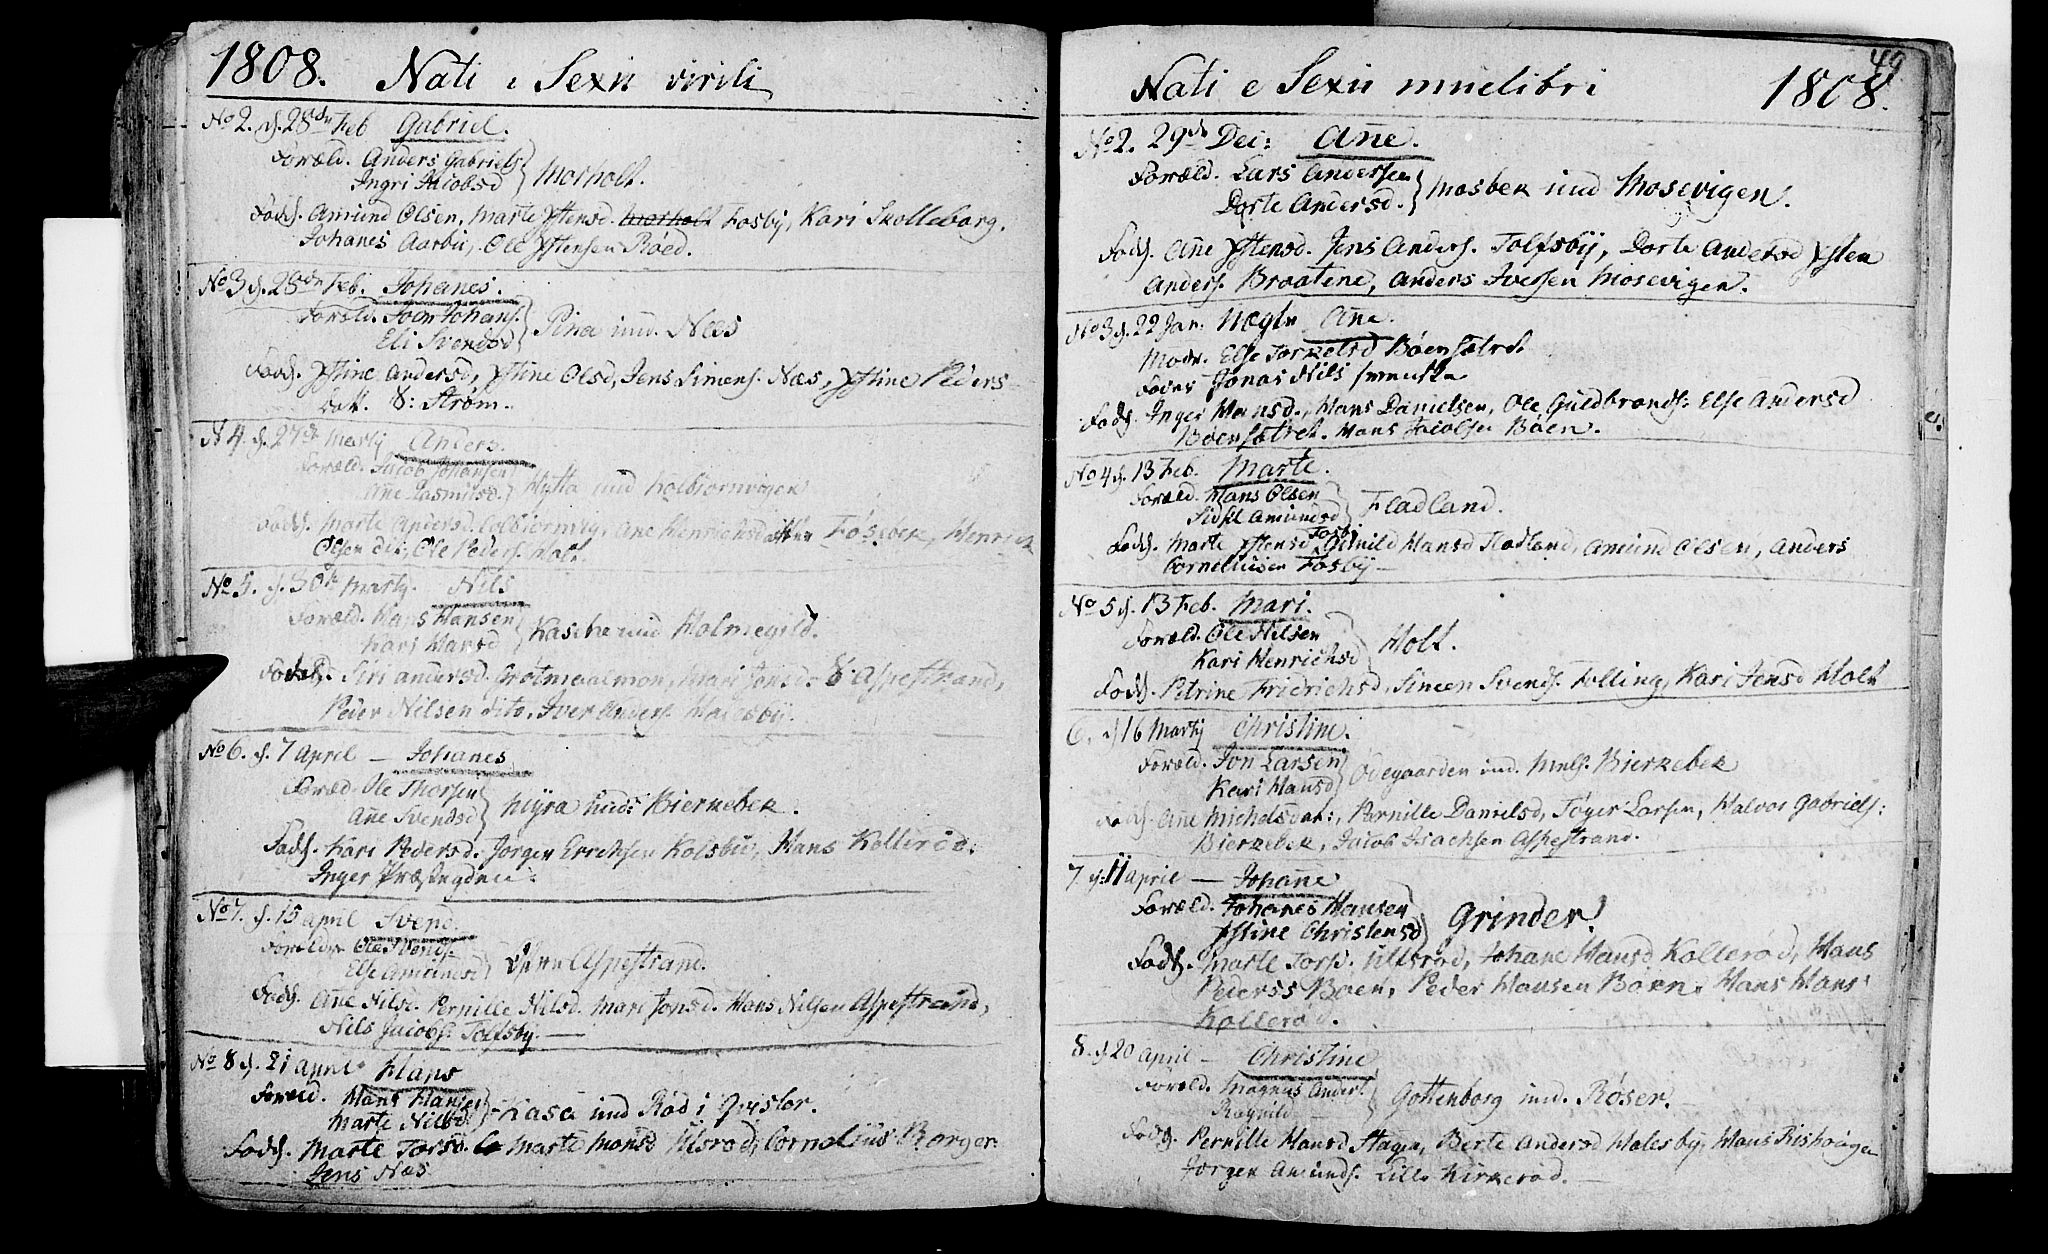 1808. Nati e Sexu virili
No 2. f. 28de Feb Gabriel.
Foræld. Anders Gabriels
Ingri Jacobsd } Morholt.
Fadd. Amund Olsen, Marte Ystensd. Morholt Fosby, Kari Skolleborg.
Johanes Aarbu, Ole Ystensen Röed.
No 3 f. 28de Feb. Johanes.
Foræld. Joen Johans.
Eli Svendsd } ind. Næs
Fadd. Ystine Andersd, Ystine Olsd, Jens Simens. Næs, Ystine Peders
datt. 8: Strøm.
4. f. 27de Martij Anders.
Foræld. Jacob Johansen
Ane Rasmusd. } Hytta ind Kolbiornvigen
Fadd. Marte Andersd. Colbiornvig, Ane Henrichsd Fosebek, Henrich
Olsen dito, Ole Peders. Holt.
No 5. f. 30te Martij. Nils
Foræld. Hans Hansen
Kari Hansd } Kasene ind Holmegild.
Fadd. Siri Andersd. Grotmaalmon, Mari Jonsd. 8 Aspestrand,
Peder Nilsen dito, Iver Anders. Halesby.
No 6. f. 7 April — Johanes
Foræld. Ole Thorsen
Ane Svendsd } Myra ind: Bierkebek.
Fadd. Kari Pedersd. Jorgen Erichsen Kolsbu, Hans Kolleröd.
Inger Præstegden.
No 7. f. 15 April Svend.
Forældr. Ole Svends.
Else Amundsd } Aspestrand.
Fadd. Ane Nilsd. Pernille Nilsd. Mari Jonsd. Hans Nilsen Aspestrand,
Nils Jacobs. Tolfsby. —
No 8 f. 21 April Hans
Foræld. Hans Hansen
Marte Nilsd } Kasa ind Röd i Qvislor.
Fadd. Marte Torsd. Marte Monsd Ulsröd, Cornelius Borger
Jens Næs
49
Nati e Sexu muelibri 1808.
No 2. 29de Dec: Ane.
Foræld. Lars Andersen
Dorte Andersd. } Mosbek ind Mosevigen.
Fadd. Ane Ystensd. Jens Anders. Tolfsby, Dorte Andersd Ysten
Anders. Braatene, Anders Iversen Mosevigen.
No 3 f. 22 Jan: Uægte Ane.
Modr. Else Torkelsd Böensætret
Fader Jonas Nils svenske
Fadd. Inger Hansd., Hans Danielsen, Ole Guldbrands: Else Andersd
Böensætret. Hans Jacobsen Böen.
No 4 f. 13 Feb. Marte.
Foræld. Hans Olsen
Sidsel Amundsd } Fladland.
Fadd. Marte Ystensd Fosby Gunild Hansd Fladland, Amund Olsen, Anders
Corneliusen Fosby —
No 5 f. 13 Feb. Mari.
Foræld. Ole Nilsen
Kari Henrichsd } Holt.
Fadd. Petrine Fridrichsd, Simen Svends. Folling, Kari Jensd Holt
6. f 16 Martij Christine.
Foræld. Jon Larsen
Kari Hansd } Ödegaarden ind. Bierkebek
Fadd. Ane Michelsdat:, Pernille Danielsd, Töger Larsen, Halvor Gabriels:
Bierkebek, Jacob Isachsen Aspestrand.
7. f. 11 April — Johane
Foræld. Johanes Hansen
Ystine Christensd } Grinder!
Fadd. Marte Torsd. Ulsröd, Johane Hansd Kolleröd, Hans
Peders Böen, Peder Hansen Böen. Hans Hans:
Kolleröd.
8. f. 20 April — Christine
Foræld. Magnus Anders.
Ragnild } Gottenborg ind. Röser. —
Fadd. Pernille Hansd Hagen, Berte Andersd Holesby, Hans Rishougen
Jorgen Amunds. Lille Kirkeröd. —